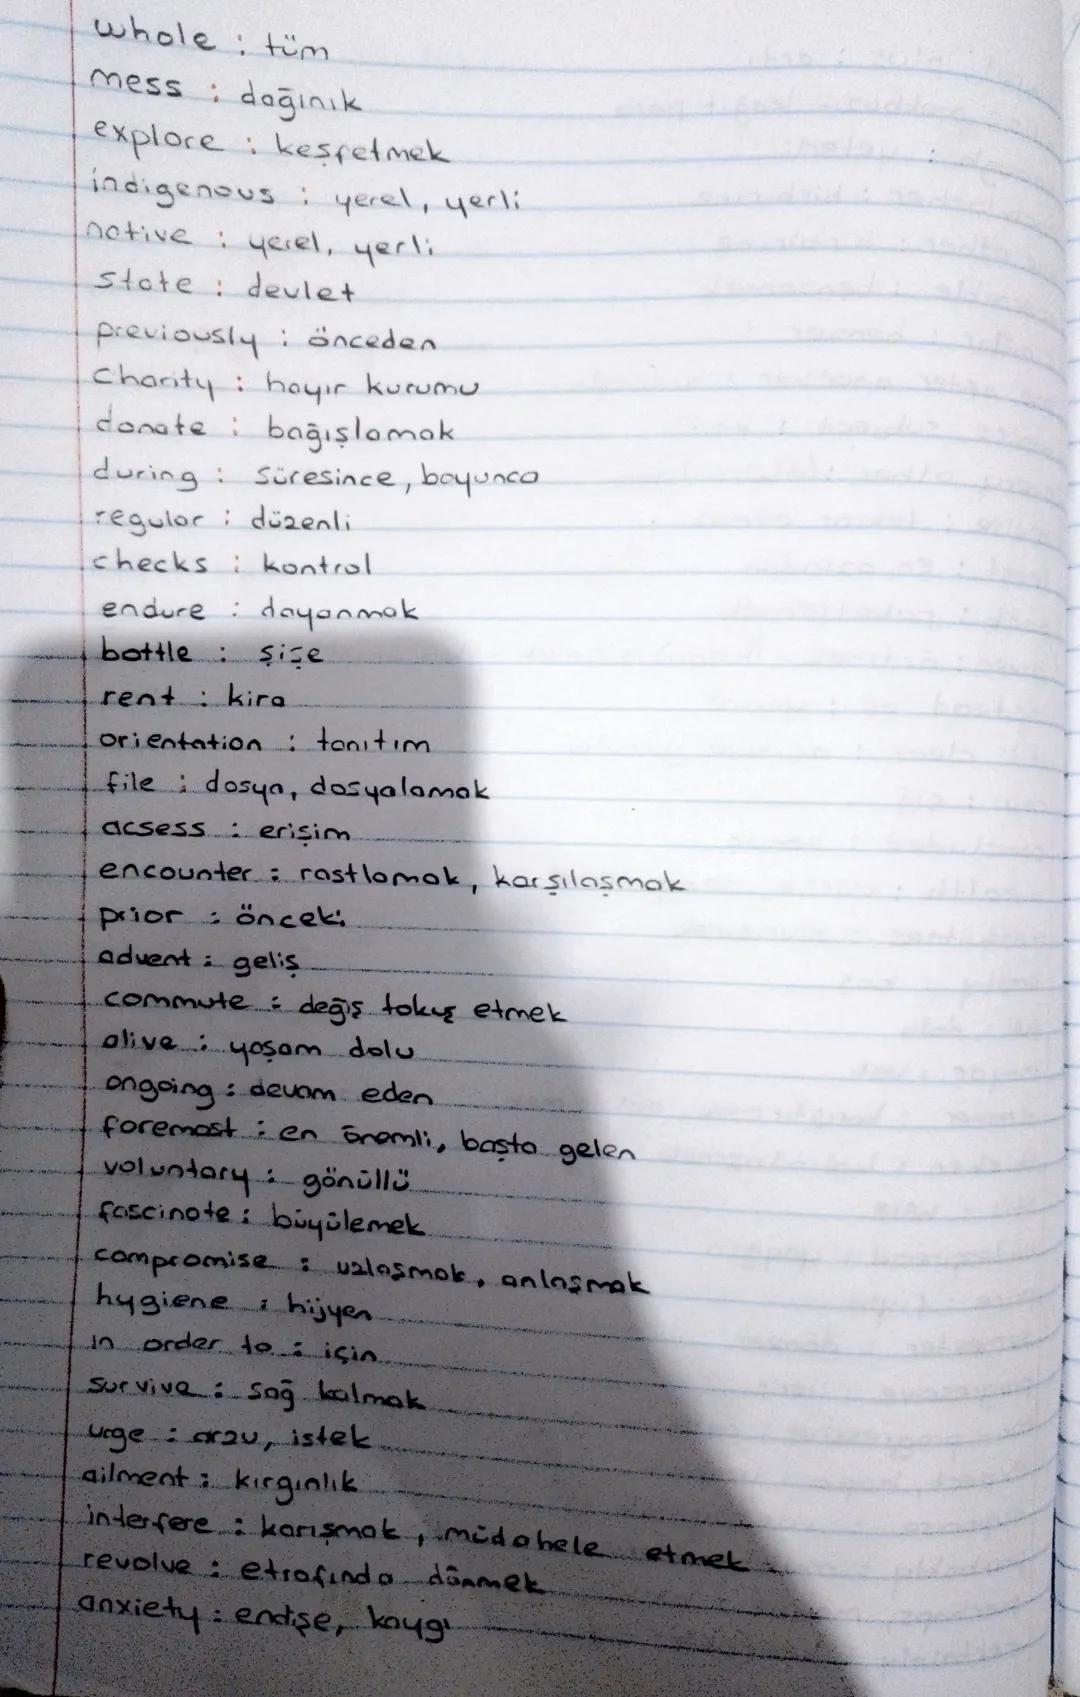 whole : tüm
mess : dağınık
explore : keşfetmek
indigenous : yerel, yerli
native : yerel, yerli
state : devlet
previously : önceden
charity : hayır kurumu
donate : bağışlamak
during : süresince, boyunca
regular : düzenli
checks : kontrol
endure : dayanmak
bottle : şişe
rent : kira
orientation : tanıtım
file : dosya, dosyalamak
acsess : erişim
encounter : rastlamak, karşılaşmak
prior : önceki
advent : geliş
commute : değiş tokuş etmek
alive : yaşam dolu
ongoing : devam eden
foremost : en önemli, başta gelen
voluntary : gönüllü
fascinate : büyülemek
compromise : uzlaşmak, anlaşmak
hygiene : hijyen
in order to : için
survive : sağ kalmak
urge : arzu, istek
ailment : kırgınlık
interfere : karışmak, müdahele etmek
revolve : etrafında dönmek
anxiety : endişe, kaygı